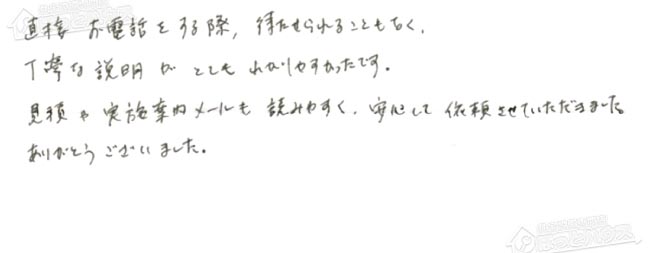 直接 お電話をする際、待たせられることもなく、
丁寧な説明が とても わかりやすかったです。
見積や実施案内メールも 読みやすく、安心して 依頼させていただきました。
ありがとうございました。